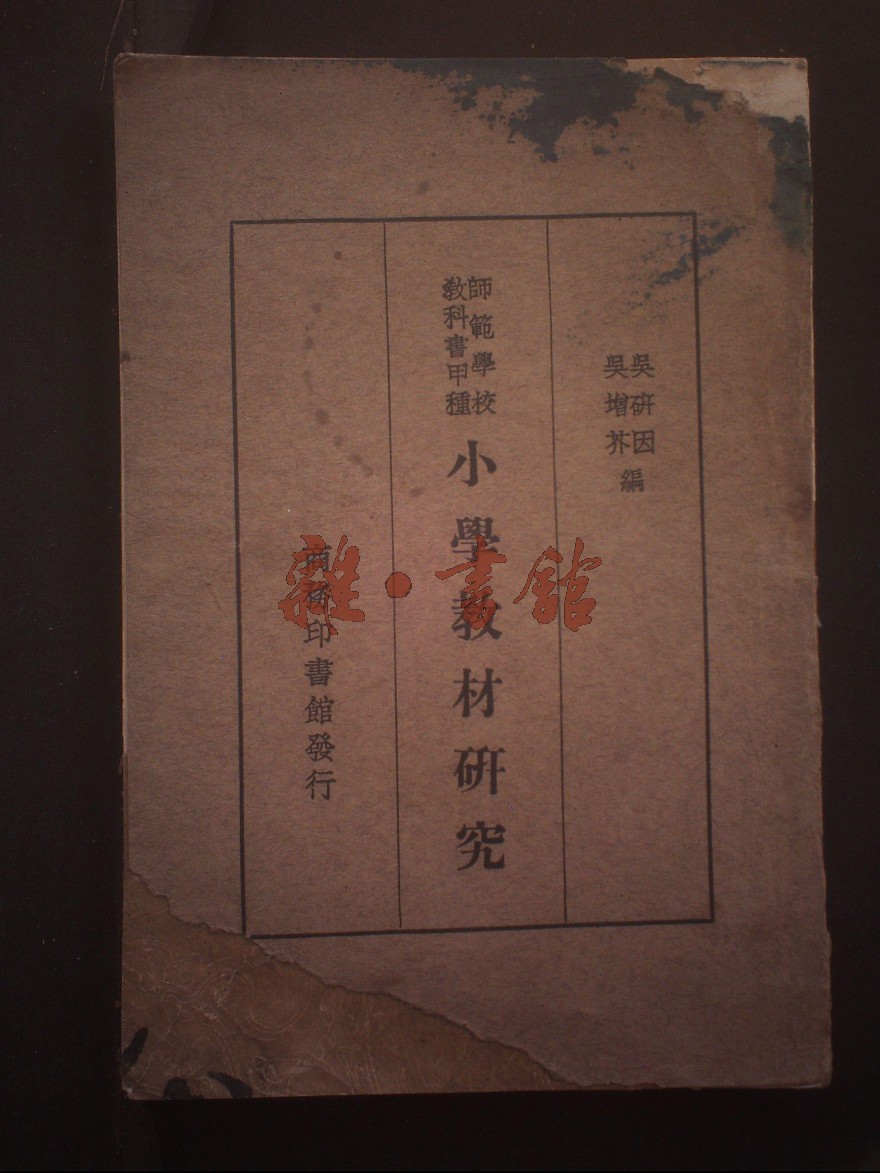 吳研因
吳增芥
編
師範學校
教科書甲種
小學教材研究
商務印書館發行
雜·書館